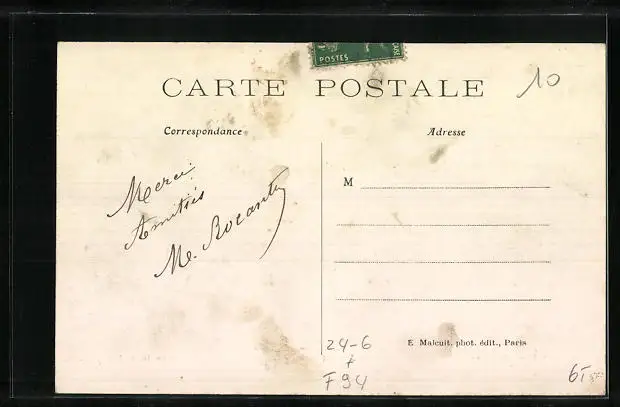 POSTES
CARTE POSTALE
10
Correspondance
Adresse
Merci
Amitiés
M
M. Rocante
E. Malcuit, phot. édit., Paris
24-6
F 94
6.-